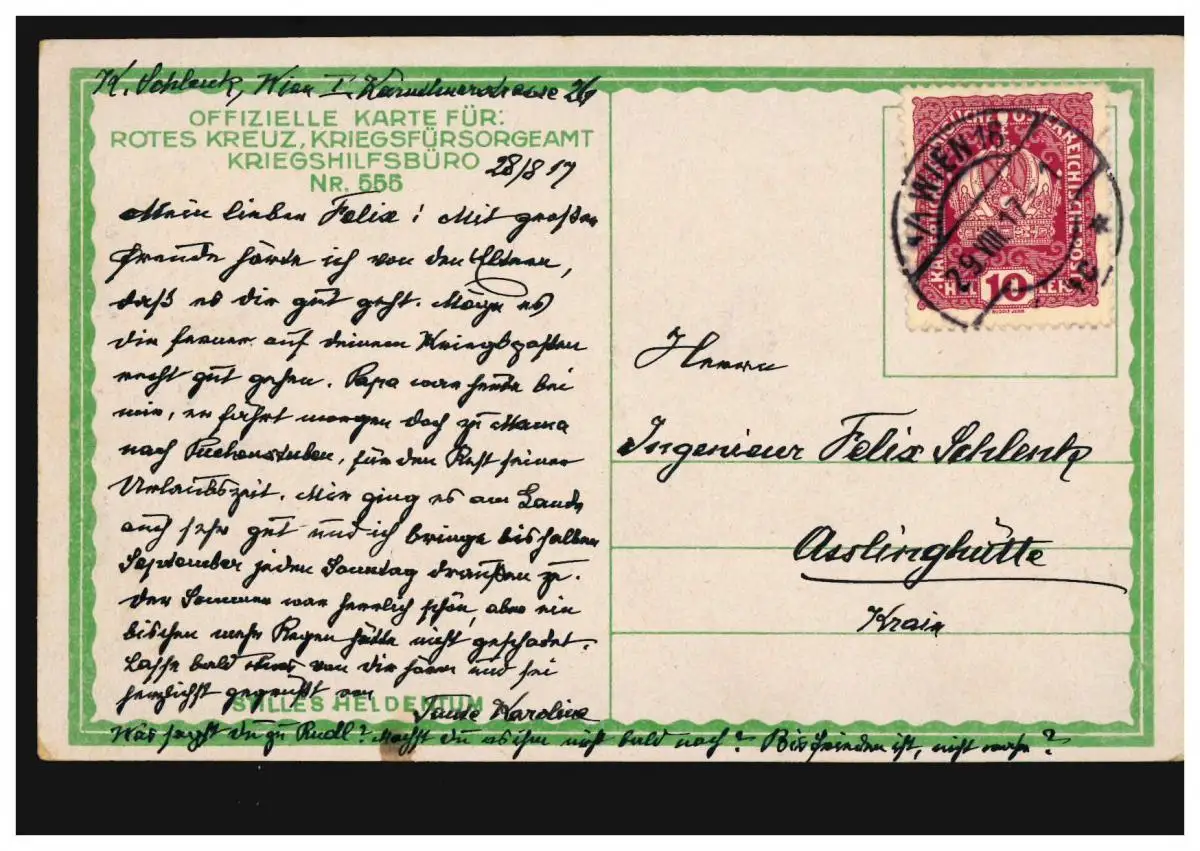 K. Schlenk, Wien I, Kärnthnerstrasse 26
OFFIZIELLE KARTE FÜR:
ROTES KREUZ, KRIEGSFÜRSORGEAMT
KRIEGSHILFSBÜRO
NR. 555
28/8 17
Mein lieber Felix! Mit großer
Freude hörte ich von den Eltern,
daß es dir gut geht. Möge es
dir ferner auf deinem Kriegsposten
recht gut gehen. Papa war heute bei
mir, er fährt morgen doch zu Mama
nach Puchenstuben, für den Rest seiner
Urlaubszeit. Mir ging es am Lande
auch sehr gut und ich bringe bis halben
September jeden Sonntag draußen zu.
Der Sommer war herrlich schön, aber ein
bischen mehr Regen hätte nicht geschadet.
Lasse bald etwas von dir hören und sei
herzlichst gegrüßt von
STILLES HELDENTUM
Tante Karoline
Was sagst du zu Rudl? Machst du es ihm nicht bald nach? Bis Frieden ist, nicht wahr?
KAISERLICHE KÖNIGLICHE ÖSTERREICHISCHE POST
HELLER 10 HELLER
RUDOLF JUNK
WIEN 18
29.VIII.17
Herrn
Ingenieur Felix Schlenk
Asslinghütte
Krain